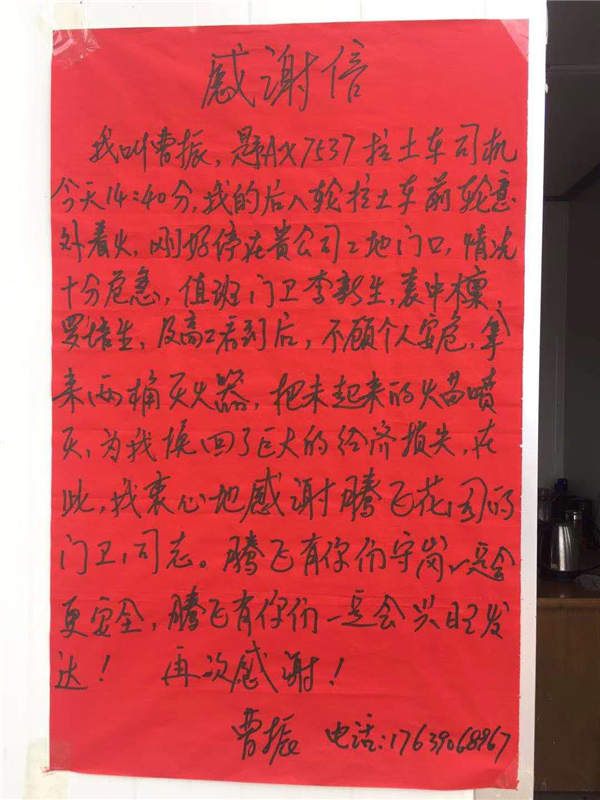 感谢信
我叫曹振，是豫AX7537拉土车司机
今天14:40分，我的后八轮拉土车前轮意
外着火，刚好停在贵公司工地门口，情况
十分危急，值班门卫李新生，袁中檩，
罗培生，及高工看到后，不顾个人安危，拿
来两桶灭火器，把未起来的火苗喷
灭，为我挽回了巨大的经济损失，在
此，我衷心地感谢腾飞花园的
门卫同志。腾飞有你们守岗一定会
更安全，腾飞有你们一定会兴旺发
达！ 再次感谢！
曹振 电话:17639068967